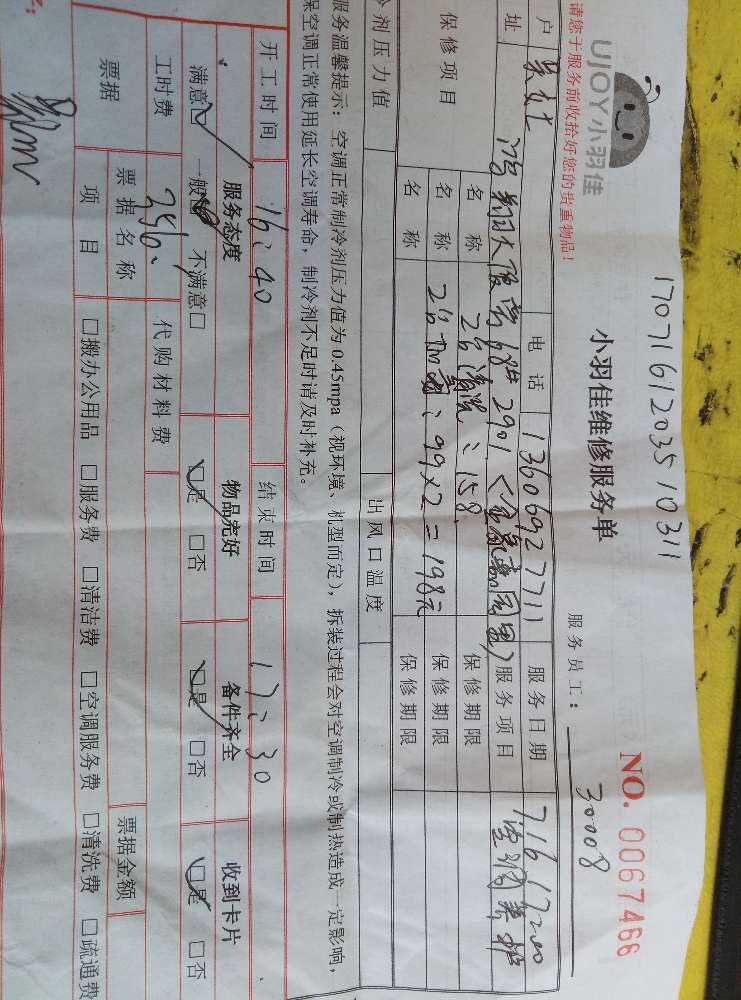 UJOY小羽佳
请您于服务前收拾好您的贵重物品!
170716120351 0311
小羽佳维修服务单
NO. 0067466
服务员工: 30008
户 电话 13606927711 服务日期 716 17:00
址 68# 2901 服务项目 空调养护
保修项目 名称 2台清洗:158 保修期限
名称 2台加 :99×2=198元 保修期限
名称 保修期限
冷剂压力值 出风口温度
服务温馨提示:空调正常制冷剂压力值为0.45mpa(视环境、机型而定),拆装过程会对空调制冷或制热造成一定影响,
保空调正常使用延长空调寿命,制冷剂不足时请及时补充。
开工时间 16:40 结束时间 17:30
服务态度 物品完好 备件齐全 收到卡片
满意☑ 一般 不满意□ ☑是 □否 ☑是 □否 ☑是 □否
工时费 356. 代购材料费
票据 票据名称 票据金额
项目 □搬办公用品 □服务费 □清洁费 □空调服务费 □清洗费 □疏通费